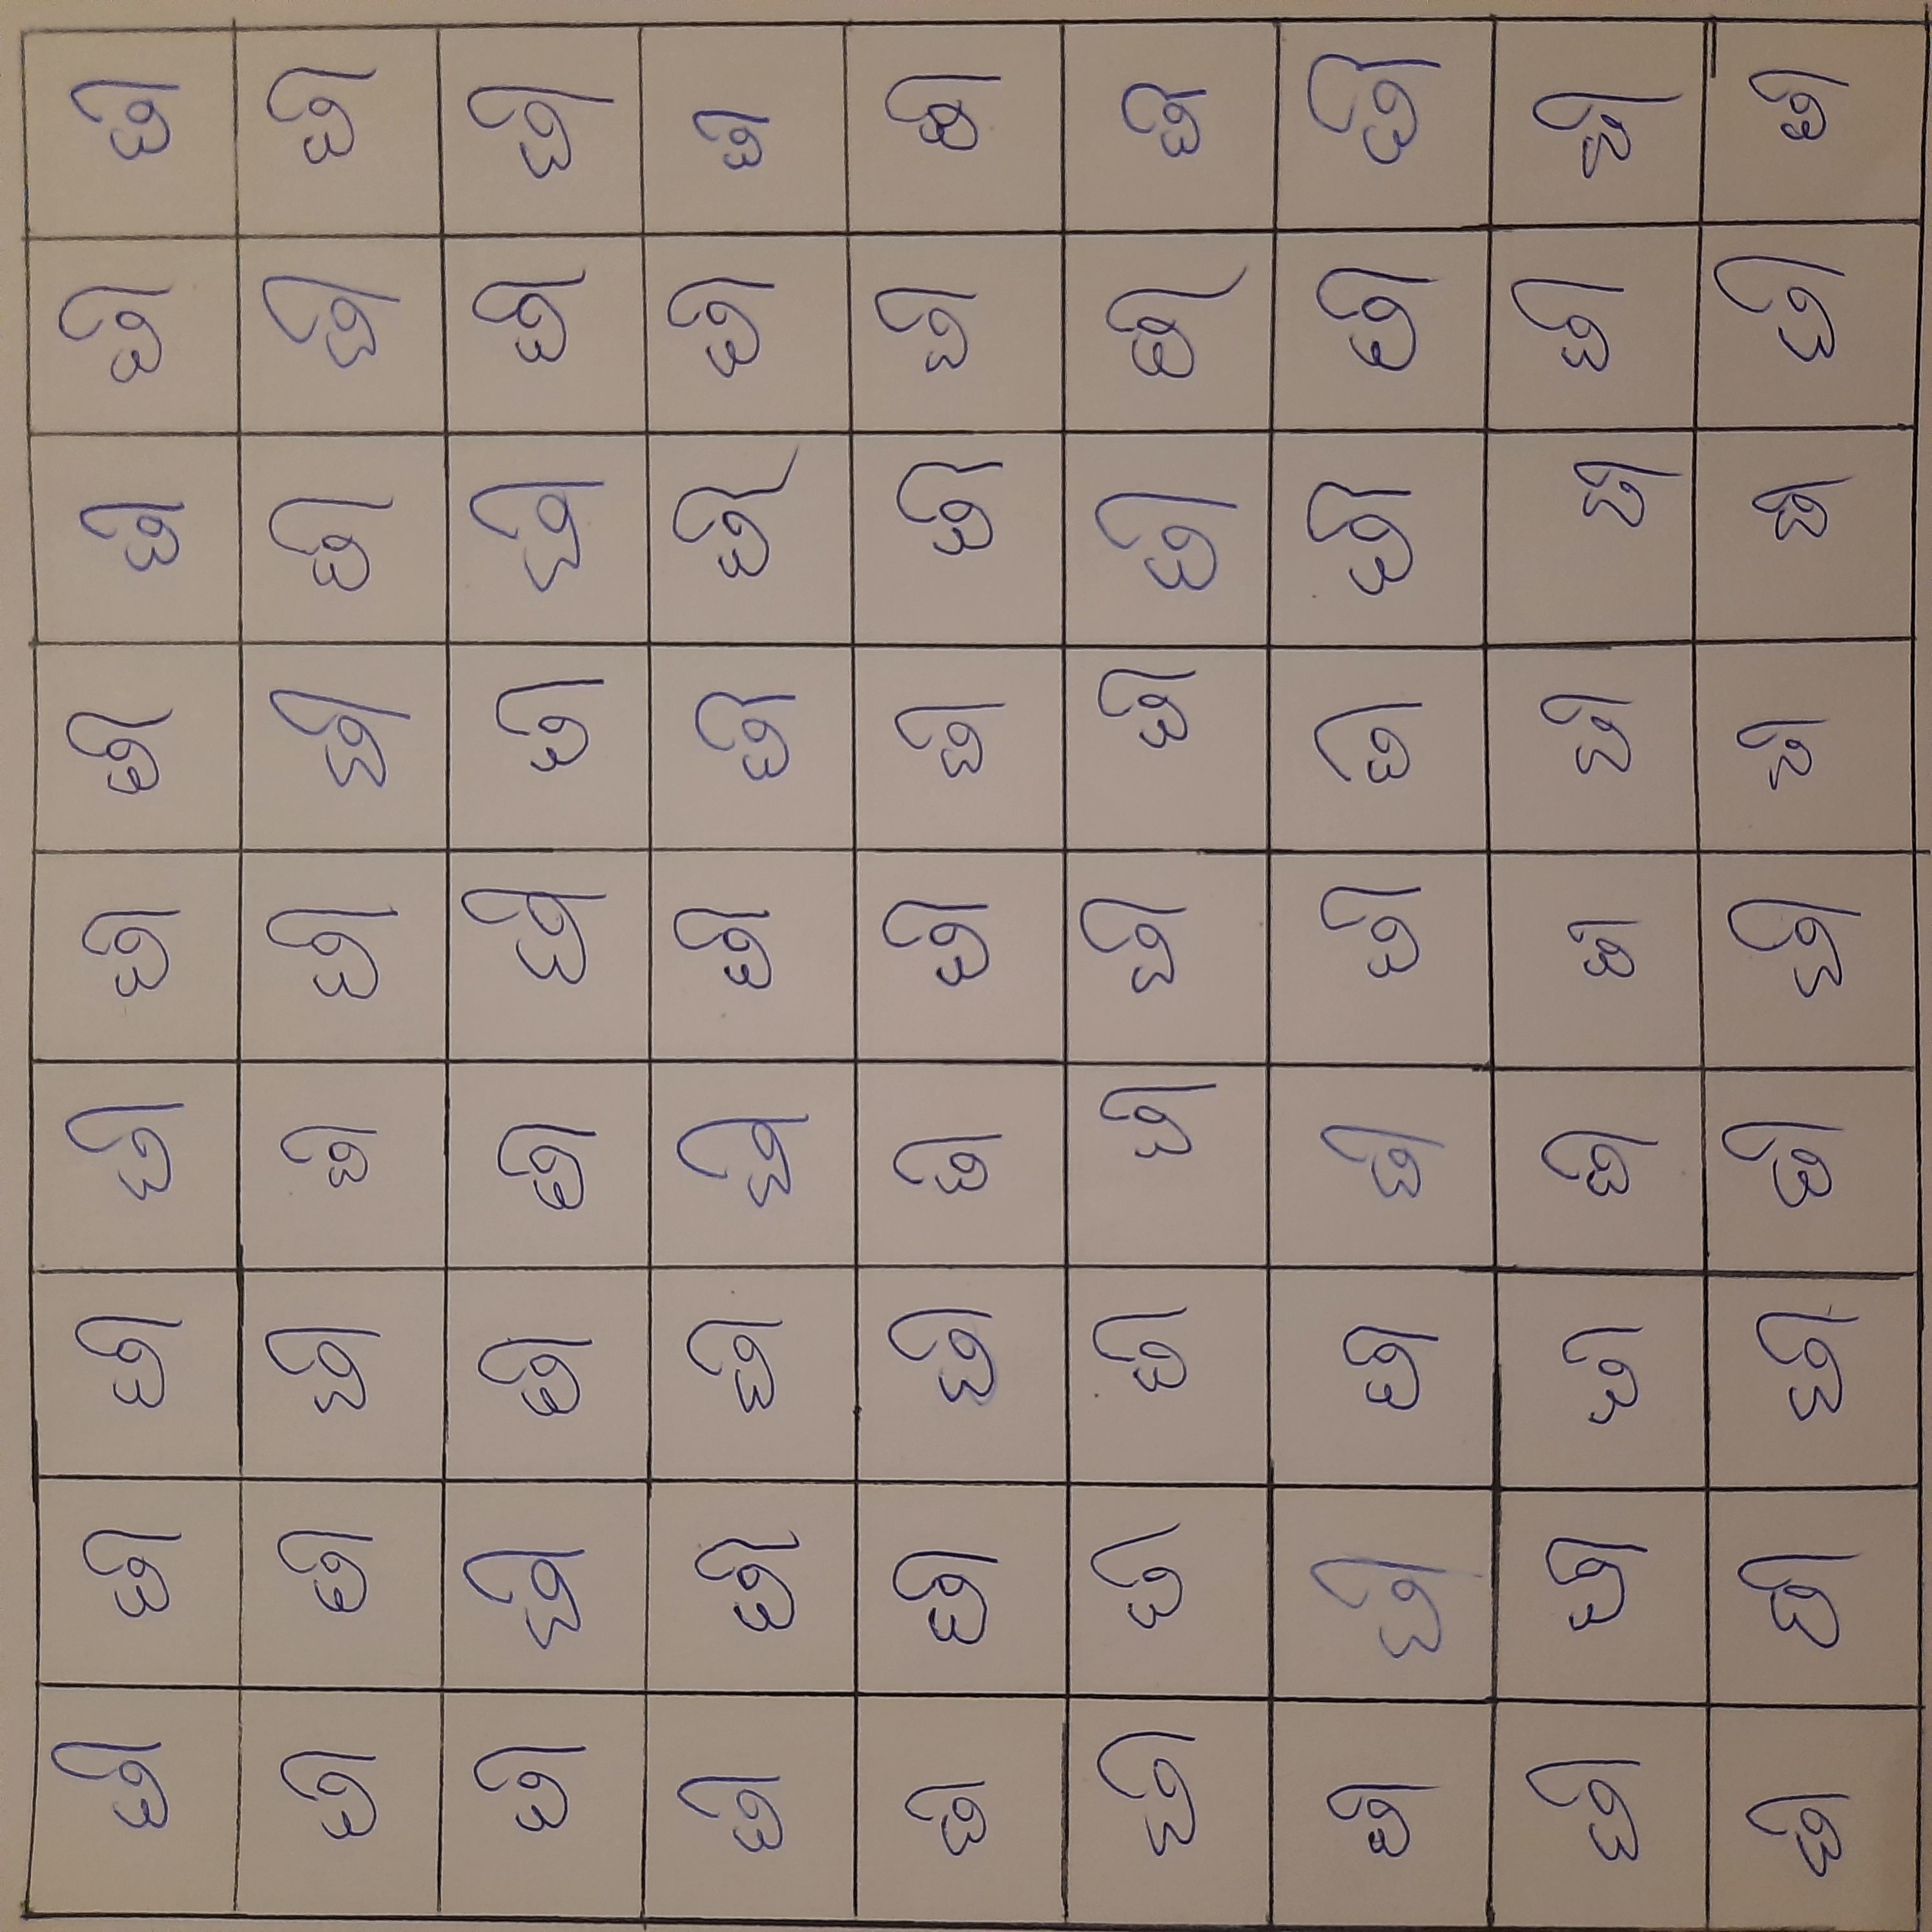 છી છી છી છી છી છી છી છી છી
છી છી છી છી છી છી છી છી છી
છી છી છી છી છી છી છી છી છી
છી છી છી છી છી છી છી છી છી
છી છી છી છી છી છી છી છી છી
છી છી છી છી છી છી છી છી છી
છી છી છી છી છી છી છી છી છી
છી છી છી છી છી છી છી છી છી
છી છી છી છી છી છી છી છી છી